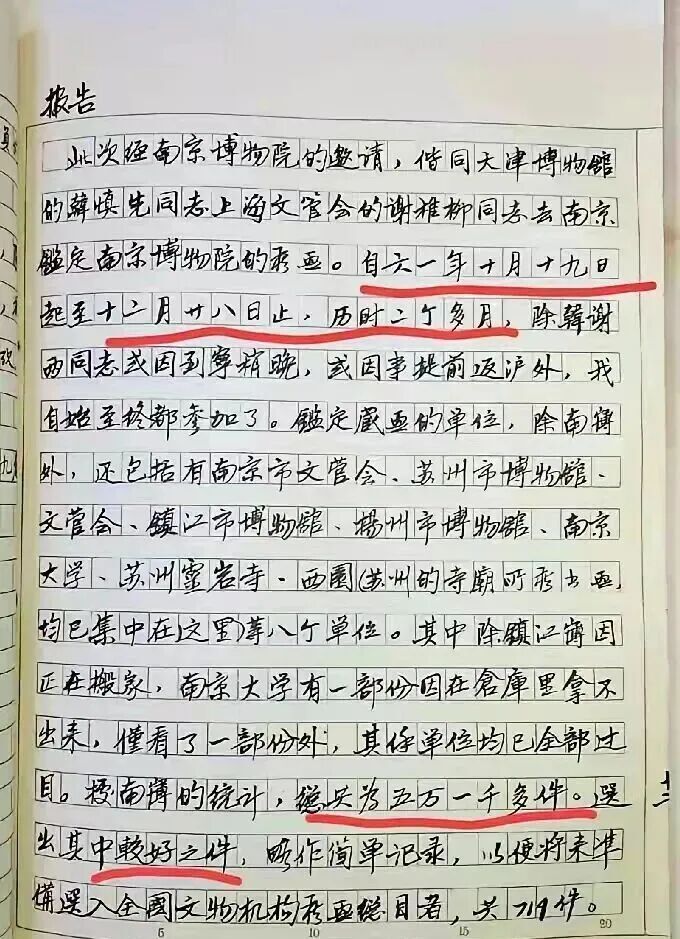 报告
此次经南京博物院的邀请，偕同天津博物館
的韓慎先同志上海文管会的谢稚柳同志去南京
鑑定南京博物院的藏画。自六一年十月十九日
起至十二月廿八日止，历时二个多月，除韓谢
两同志或因到寧稍晚，或因事提前返沪外，我
自始至终都参加了。鑑定藏画的单位，除南博
外，还包括有南京市文管会、苏州市博物館、
文管会、鎮江市博物館、揚州市博物館、南京
大学、苏州靈岩寺、西園(苏州的寺廟所藏书画，
均已集中在这里)等八个单位。其中除鎮江因
正在搬家，南京大学有一部份因在倉庫里拿不
出来，僅看了一部份外，其任单位均已全部过
目。据南博的统计，總共为五万一千多件。選
出其中較好之件，略作简单记录，以便将来準
備選入全國文物机构藏画總目者，共719件。
5 10 15 20